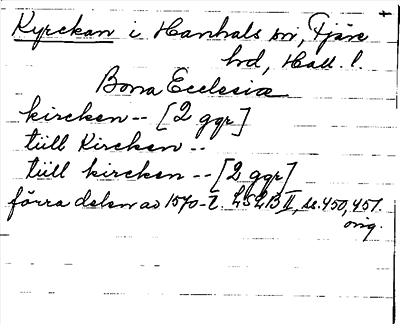 Kyrckan i Hanhals sn, Fjäre
hrd, Hall. l.
Bona Ecclesiæ
kircken -- [2 ggr]
tiill Kircken --
tiill kircken -- [2 ggr]
förra delen av 1570-t. LSLB II, ss. 450, 451.
orig.